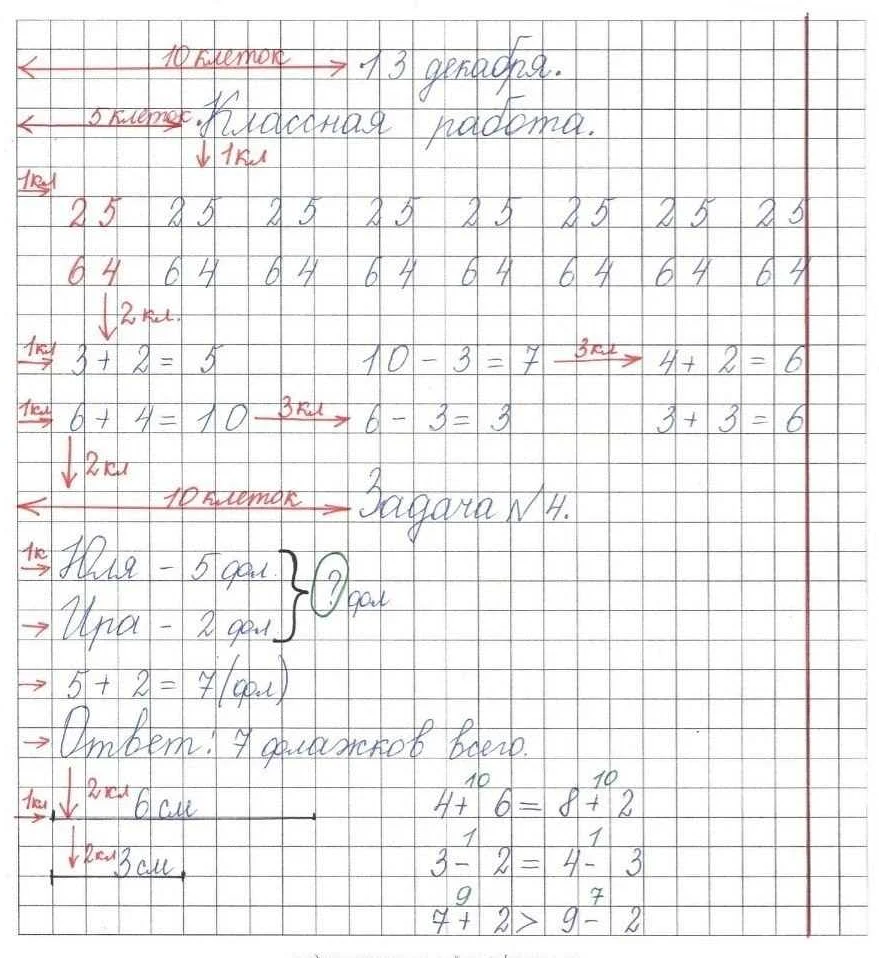 10 клеток 13 декабря.
5 клеток Классная работа.
1 кл
1кл
25 25 25 25 25 25 25 25
64 64 64 64 64 64 64 64
2 кл.
1кл 3 + 2 = 5 10 - 3 = 7 3кл 4 + 2 = 6
1кл 6 + 4 = 10 3 кл 6 - 3 = 3 3 + 3 = 6
2 кл
10 клеток Задача №4.
1к Юля - 5 фл.
? фл
Ира - 2 фл
5 + 2 = 7 (фл)
Ответ: 7 флажков всего.
2 кл 10 10
1кл 6 см 4 + 6 = 8 + 2
1 1
2кл 3 см 3 - 2 = 4 - 3
9 7
7 + 2 > 9 - 2